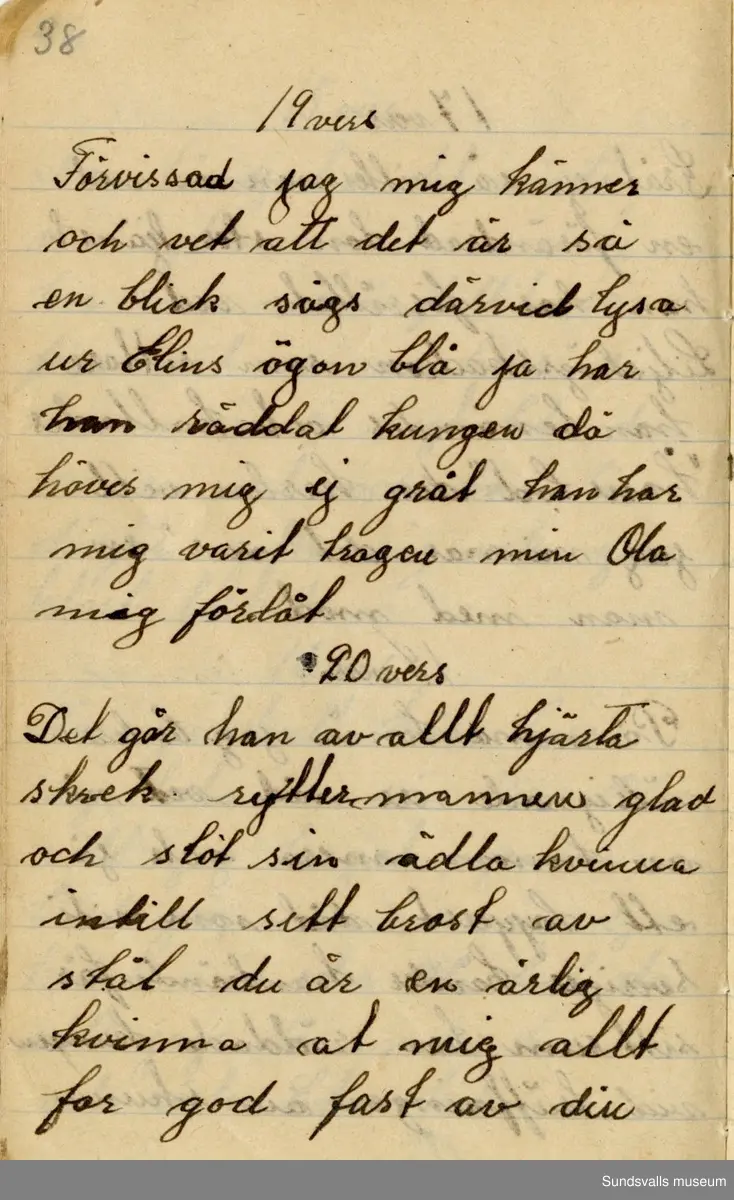 38
19 vers
Förvissad jag mig känner
och vet att det är så
en blick sågs därvid lysa
ur Elins ögon blå ja har
han räddat kungen då
höves mig ej gråt han har
mig varit trogen min Ola
mig förlåt
20 vers
Det gör han av allt hjärta
skrek ryttermannen glad
och slöt sin ädla kvinna
intill sett brost av
stål du är en ärlig
kvinna at mig allt
for god fast av din
Sundsvalls museum